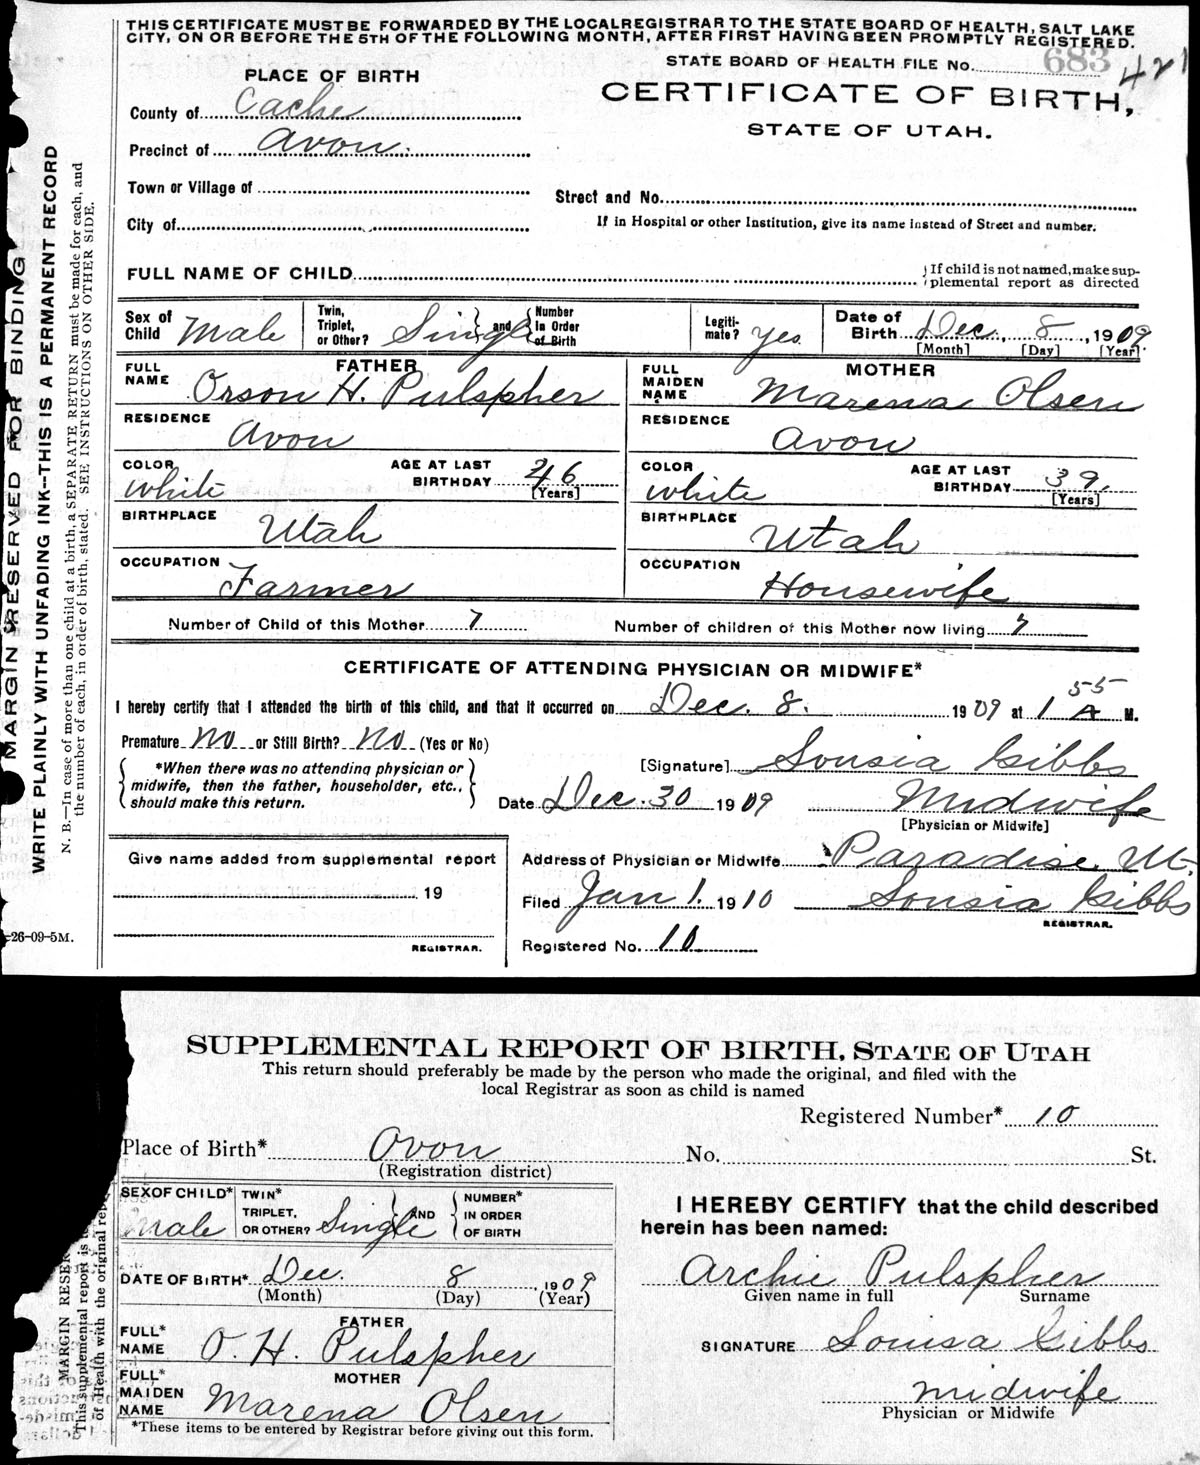 THIS CERTIFICATE MUST BE FORWARDED BY THE LOCAL REGISTRAR TO THE STATE BOARD OF HEALTH, SALT LAKE
CITY, ON OR BEFORE THE 5TH OF THE FOLLOWING MONTH, AFTER FIRST HAVING BEEN PROMPTLY REGISTERED.
STATE BOARD OF HEALTH FILE No. 683 421
PLACE OF BIRTH
CERTIFICATE OF BIRTH,
STATE OF UTAH.
County of Cache
Precinct of Avon.
Town or Village of
Street and No.
City of
If in Hospital or other Institution, give its name instead of Street and number.
FULL NAME OF CHILD
} If child is not named, make sup-
plemental report as directed
Sex of Child Male
Twin, Triplet, or Other? Single } and { Number In Order of Birth
Legiti-mate? Yes
Date of Birth Dec. 8, 1909
[Month] [Day] [Year]
FATHER
FULL NAME Orson H. Pulspher
MOTHER
FULL MAIDEN NAME Marena Olsen
RESIDENCE Avon
RESIDENCE Avon
COLOR White
AGE AT LAST BIRTHDAY 46
[Years]
COLOR White
AGE AT LAST BIRTHDAY 39.
[Years]
BIRTHPLACE Utah
BIRTHPLACE Utah
OCCUPATION Farmer
OCCUPATION Housewife
Number of Child of this Mother 7
Number of children of this Mother now living 7
CERTIFICATE OF ATTENDING PHYSICIAN OR MIDWIFE*
I hereby certify that I attended the birth of this child, and that it occurred on Dec. 8. 1909 at 1 55 A M.
Premature No or Still Birth? No (Yes or No)
{ *When there was no attending physician or
midwife, then the father, householder, etc.,
should make this return. }
[Signature] Sousia Gibbs
Date Dec. 30 1909 Midwife
[Physician or Midwife]
Give name added from supplemental report
19
REGISTRAR.
Address of Physician or Midwife Paradise Ut.
Filed Jan 1. 1910 Sousia Gibbs
REGISTRAR.
Registered No. 10
-26-09-5M.
MARGIN RESERVED FOR BINDING
WRITE PLAINLY WITH UNFADING INK--THIS IS A PERMANENT RECORD
N. B.—In case of more than one child at a birth, a SEPARATE RETURN must be made for each, and
the number of each, in order of birth, stated. SEE INSTRUCTIONS ON OTHER SIDE.
SUPPLEMENTAL REPORT OF BIRTH, STATE OF UTAH
This return should preferably be made by the person who made the original, and filed with the
local Registrar as soon as child is named
Registered Number* 10
Place of Birth* Ovon No. St.
(Registration district)
SEX OF CHILD* Male
TWIN* TRIPLET, OR OTHER? Single } AND { NUMBER* IN ORDER OF BIRTH
I HEREBY CERTIFY that the child described
herein has been named:
DATE OF BIRTH* Dec. 8 1909
(Month) (Day) (Year)
Archie Pulspher
Given name in full Surname
FATHER
FULL* NAME O. H. Pulspher
SIGNATURE Louisa Gibbs
MOTHER
FULL* MAIDEN NAME Marena Olsen
midwife
Physician or Midwife
*These items to be entered by Registrar before giving out this form.
MARGIN RESER
This supplemental report is to
of Health with the original rep